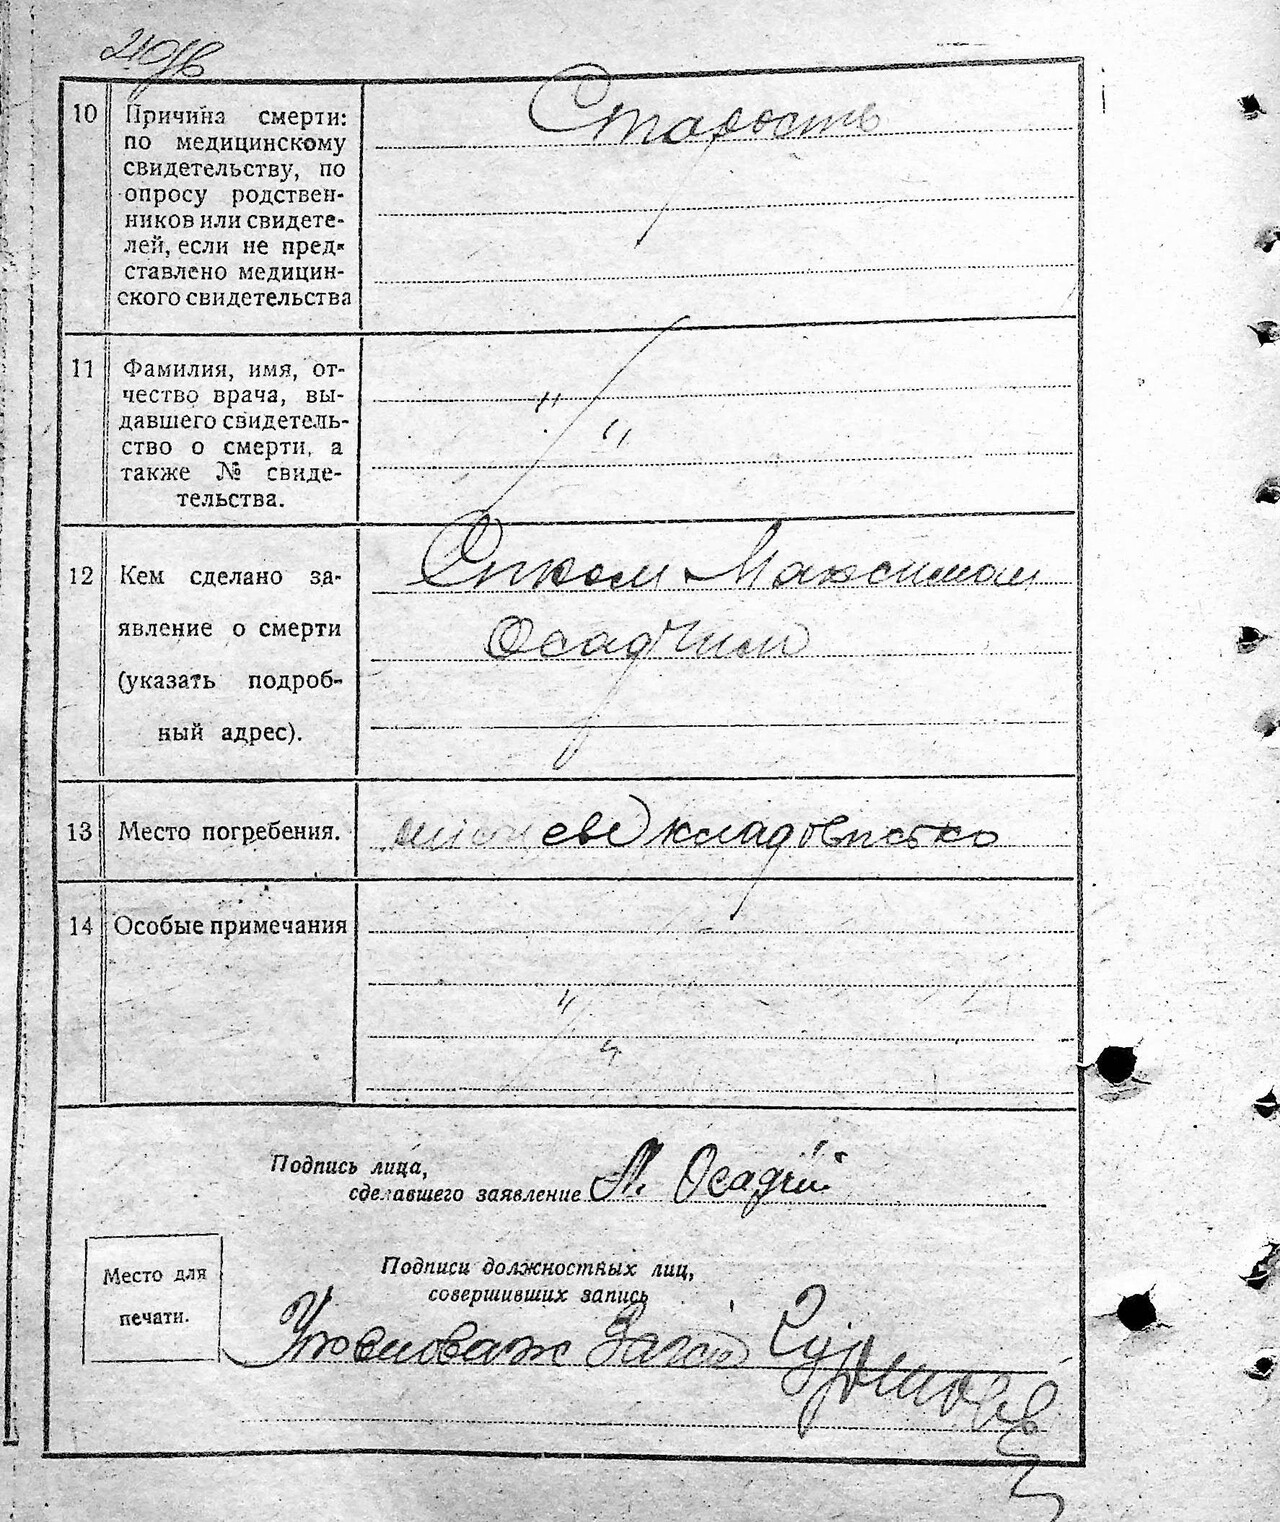 10 Причина смерти:
по медицинскому
свидетельству, по
опросу родствен-
ников или свидете-
лей, если не пред-
ставлено медицин-
ского свидетельства
Старость
11 Фамилия, имя, от-
чество врача, вы-
давшего свидетель-
ство о смерти, а
также № свиде-
тельства.
" "
12 Кем сделано за-
явление о смерти
(указать подроб-
ный адрес).
Максимом
Осадчим
13 Место погребения.
кладовистко
14 Особые примечания
" "
Подпись лица,
сделавшего заявление
Осадчий
Место для
печати.
Подписи должностных лиц,
совершивших запись